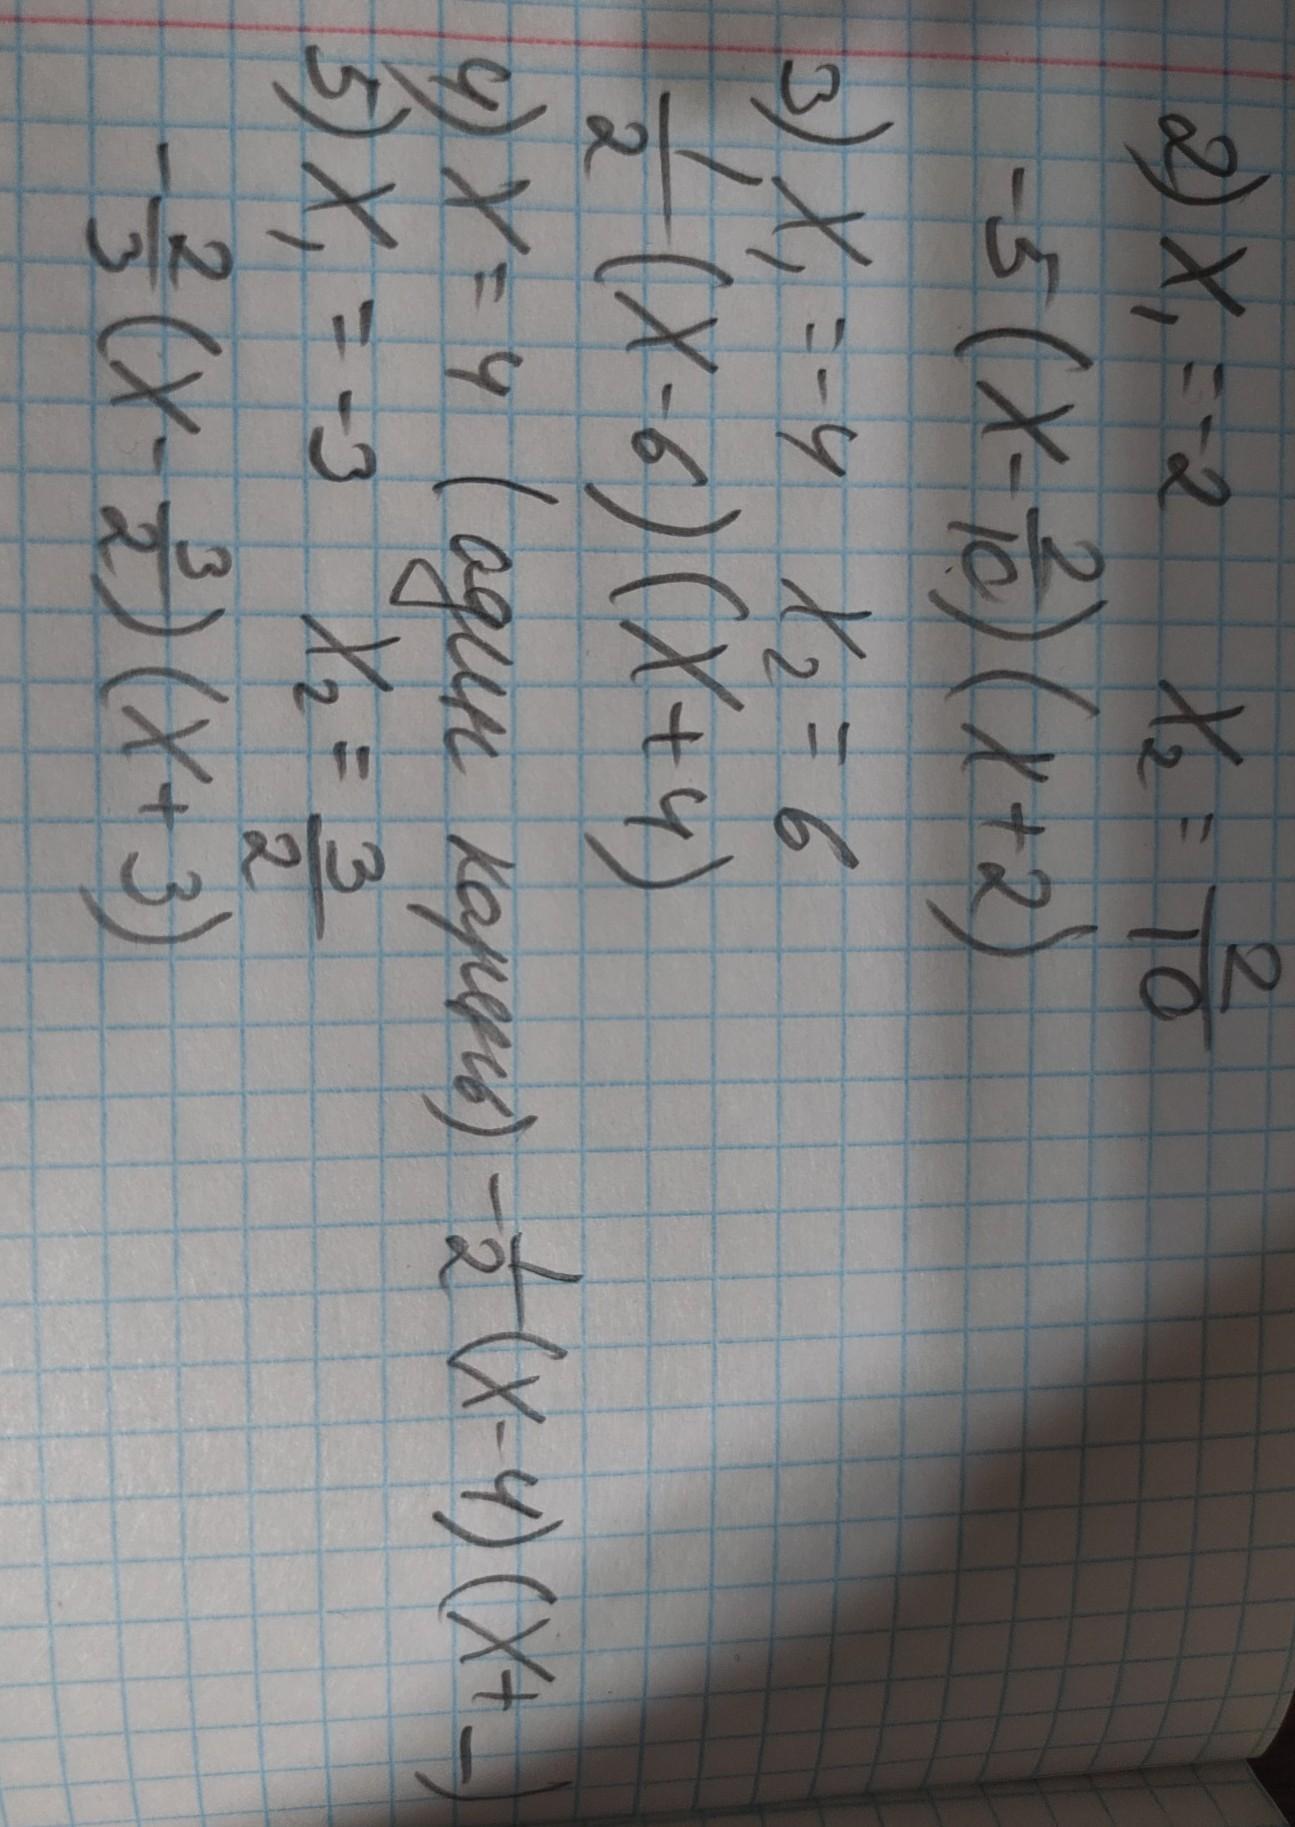 2) X₁ = -2 X₂ = 2/10
-5 (X - 2/10) (X + 2)
3) X₁ = -4 X₂ = 6
1/2 (X - 6) (X + 4)
4) X = 4 (один корень) - 1/2 (X - 4) (X + -)
5) X₁ = -3 X₂ = 3/2
- 2/3 (X - 3/2) (X + 3)